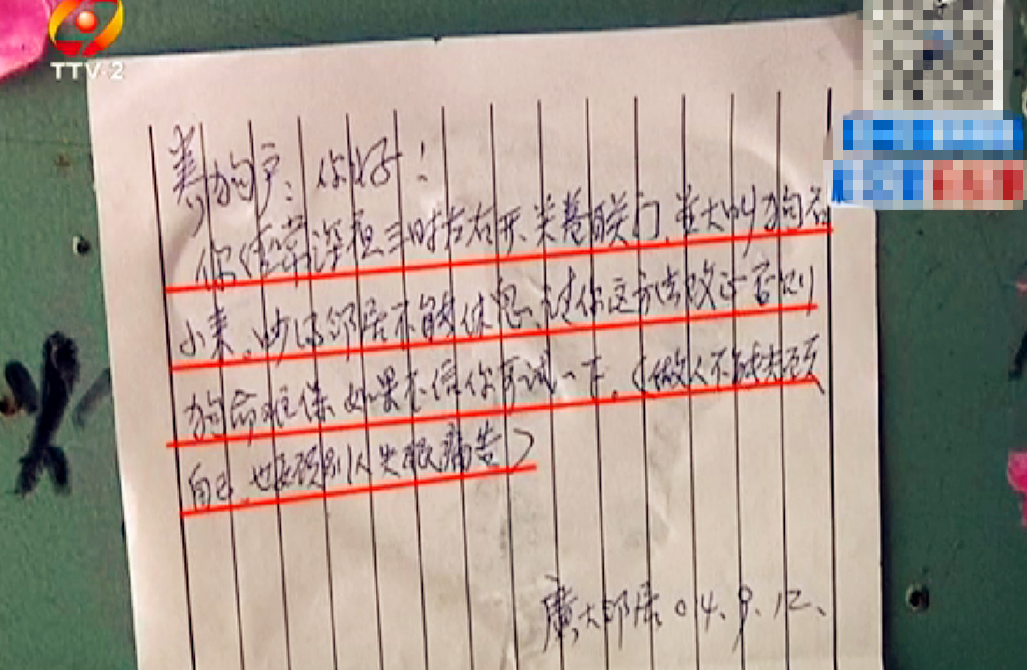 TTV-2
养狗户：你好！
你经常深夜三时左右开、关卷联门，并大叫狗名
小来、吵的邻居不能休息、过你这方法改正否则
狗命难保 如果不信你可试一下，（做人不能光顾
自己、也要顾别人失眠痛苦）
广大邻居 04、9、12、